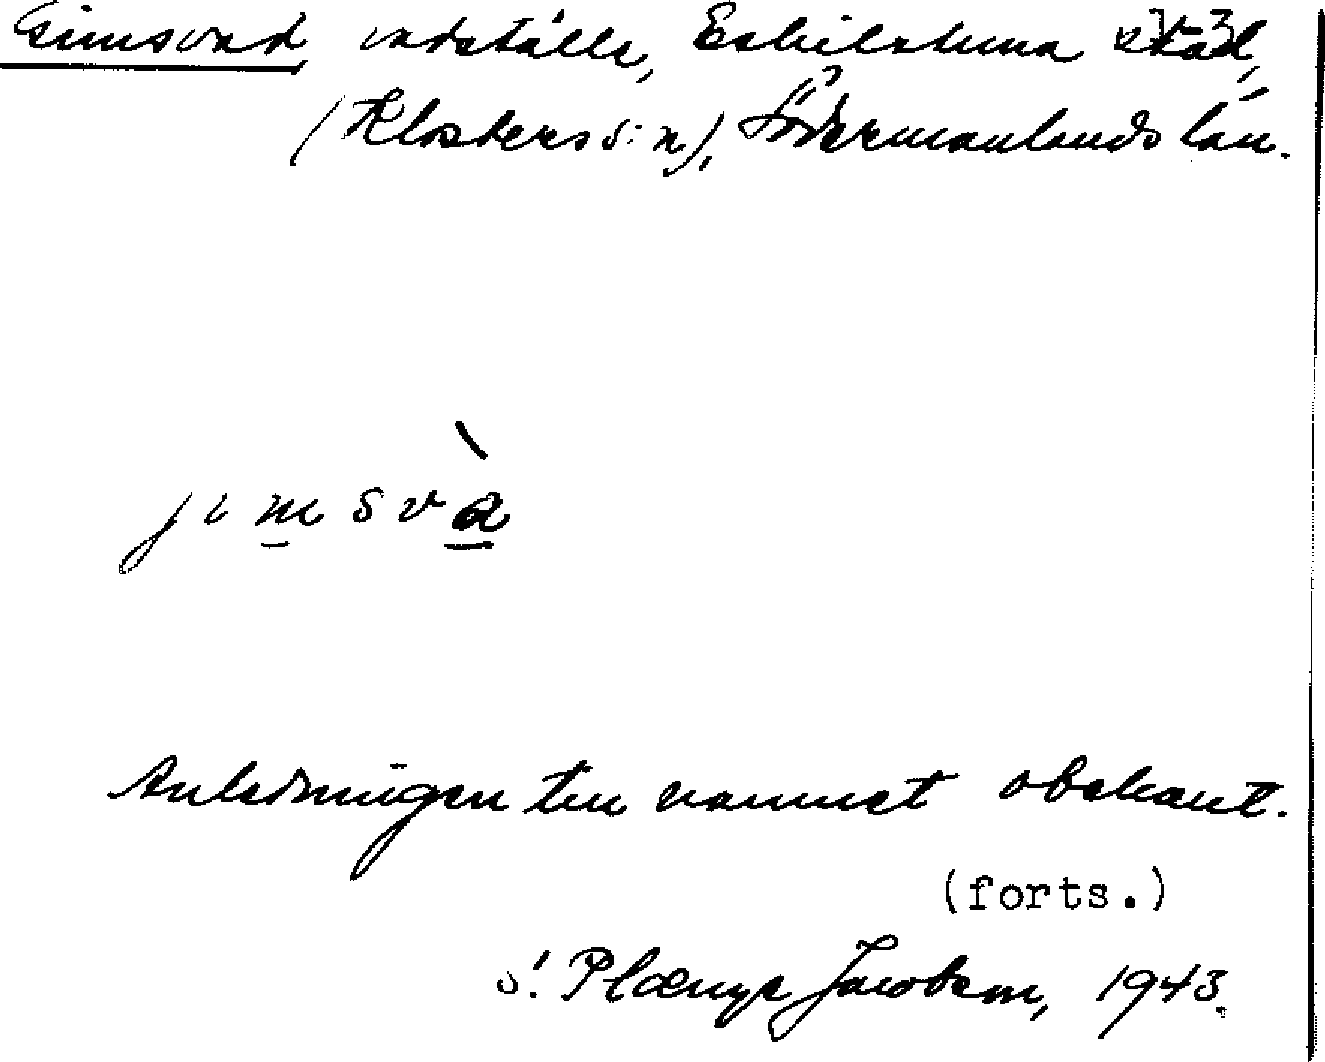 Gimsvad vadställe, Eskilstuna stad,
(Klosters s:n), Södermanlands län.
jimsvà
Anledningen till namnet obekant.
(forts.)
S. Plænge Jacobson, 1943.